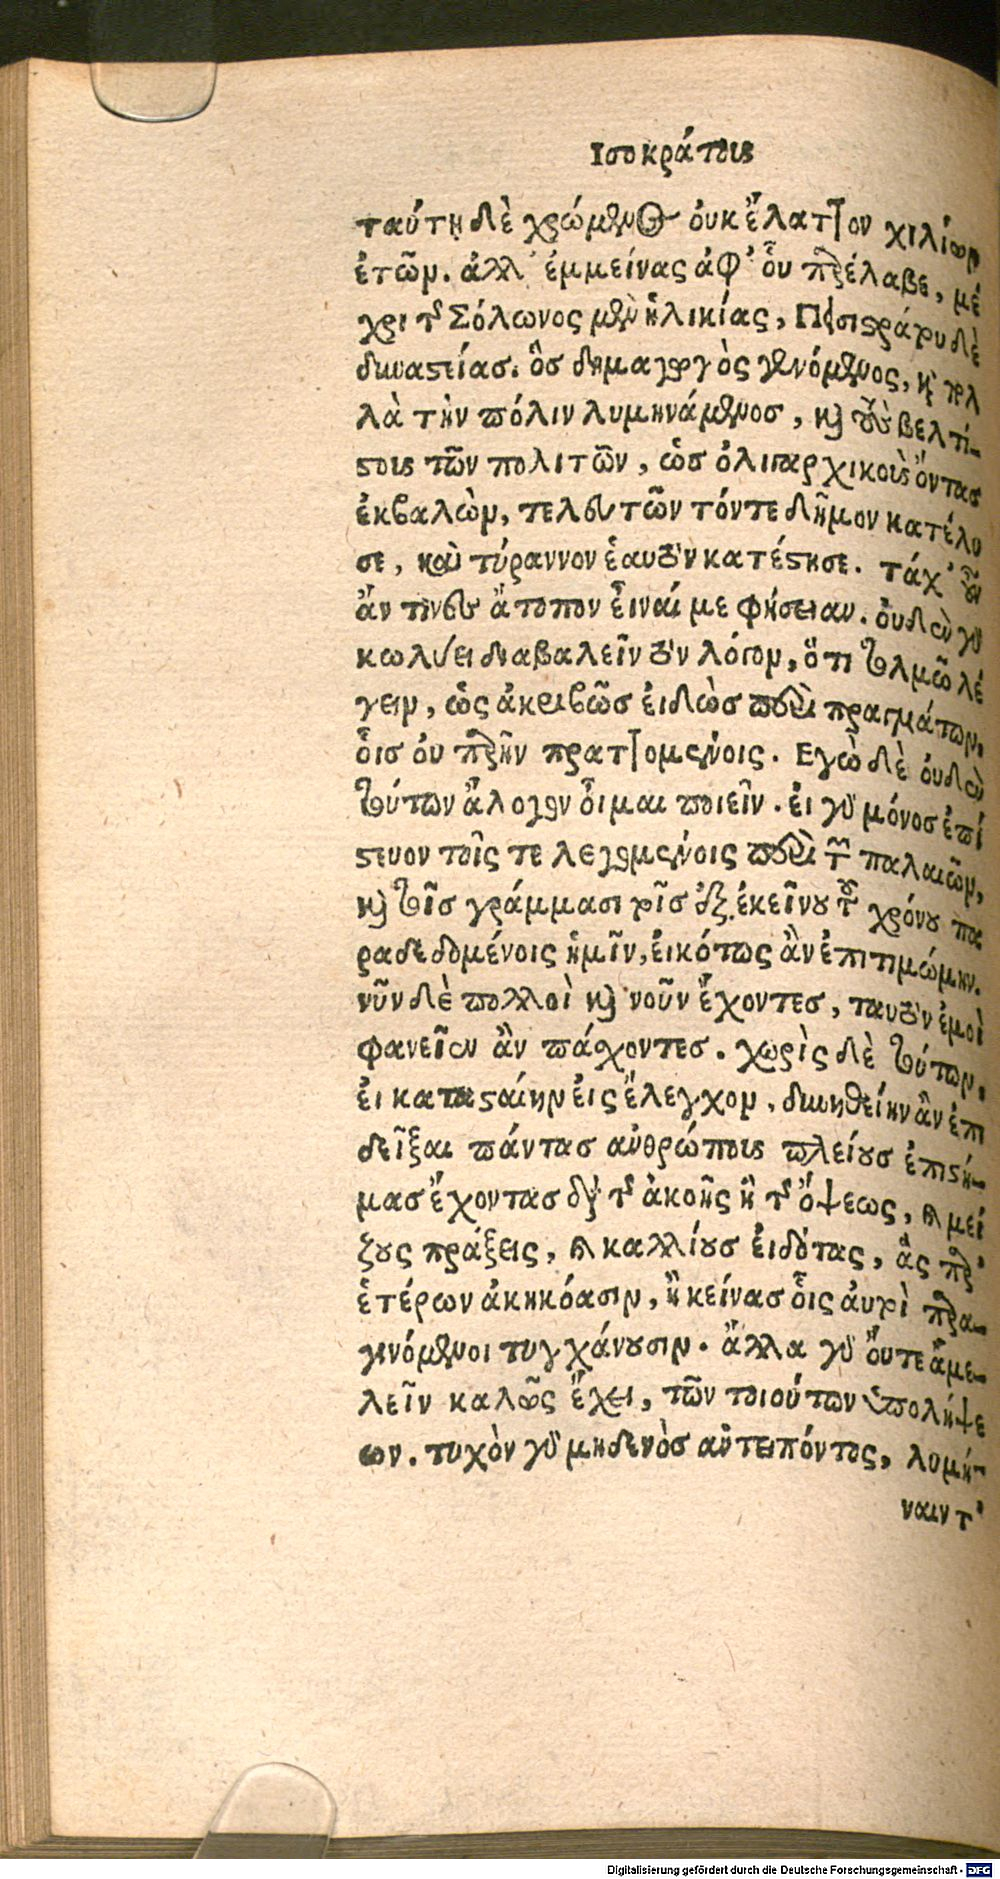 Ισοκράτους
ταύτῃ δὲ χρώμενος οὐκ ἔλαττον χιλίων
ἐτῶν. ἀλλ' ἐμμείνας ἀφ' οὗ παρέλαβε, μέ
χρι τῆς Σόλωνος μὲν ἡλικίας, Πεισιστράτου δὲ
δυναστείας. ὃς δημαγωγὸς γενόμενος, καὶ πολ
λὰ τὴν πόλιν λυμηνάμενος, καὶ τοὺς βελτί-
στους τῶν πολιτῶν, ὡς ὀλιγαρχικοὺς ὄντας
ἐκβαλὼν, τελευτῶν τόν τε δῆμον κατέλυ
σε, καὶ τύραννον ἑαυτὸν κατέστησε. τάχ' οὖν
ἄν τινες ἄτοπον εἶναί με φήσειαν. οὐδὲν γὰρ
κωλύει διαβαλεῖν τὸν λόγον, ὅτι τολμῶ λέ
γειν, ὡς ἀκριβῶς εἰδὼς περὶ πραγμάτων,
οἷς οὐ παρῆν πραττομένοις. Εγὼ δὲ οὐδὲν
τούτων ἄλογον οἶμαι ποιεῖν. εἰ γὰρ μόνος ἐπί
στευον τοῖς τε λεγομένοις περὶ τῶν παλαιῶν,
καὶ τοῖς γράμμασι τοῖς ἐξ ἐκείνου τοῦ χρόνου πα
ραδεδομένοις ἡμῖν, εἰκότως ἂν ἐπιτιμώμην.
νῦν δὲ πολλοὶ καὶ νοῦν ἔχοντες, ταυτὸν ἐμοὶ
φανεῖεν ἂν πάσχοντες. χωρὶς δὲ τούτων,
εἰ κατασταίην εἰς ἔλεγχον, δυνηθείην ἂν ἐπι
δεῖξαι πάντας ἀνθρώπους πλείους ἐπιστή-
μας ἔχοντας διὰ τῆς ἀκοῆς ἢ τῆς ὄψεως, καὶ μεί
ζους πράξεις, καὶ καλλίους εἰδότας, ἃς παρ'
ἑτέρων ἀκηκόασιν, ἢ κείνας οἷς αὐτοὶ παρα-
γενόμενοι τυγχάνουσιν. ἄλλα γὰρ οὔτε ἀμε-
λεῖν καλῶς ἔχει, τῶν τοιούτων ὑπολήψε
ων. τυχὸν γὰρ μηδενὸς ἀντειπόντος, λυμή-
ναιντ'
Digitalisierung gefördert durch die Deutsche Forschungsgemeinschaft - DFG